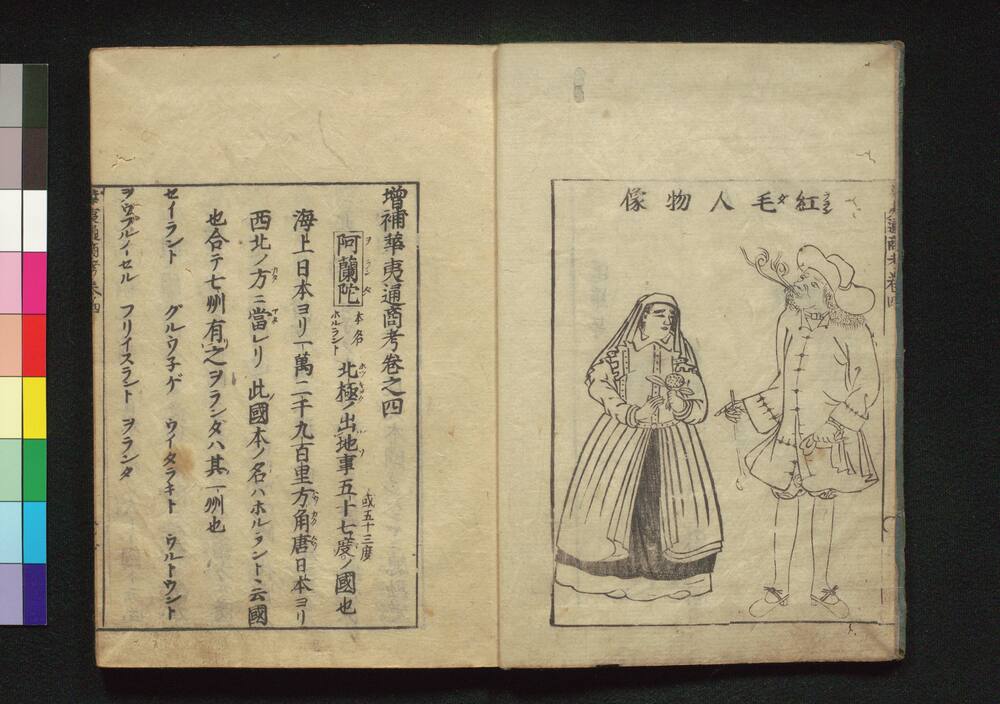 紅毛人物像
增補華夷通商考卷之四
阿蘭陀 本名ホルラント 北極ノ出地事五十七度ノ國也 或五十三度
海上日本ヨリ一萬二千九百里方角唐日本ヨリ
西北ノ方ニ當レリ此國本ノ名ハホルラント云國
也合テ七州有之ヲランダハ其一州也
セイラント グルウ子ゲ ウイタラキト
フリイスラント ヲランタ